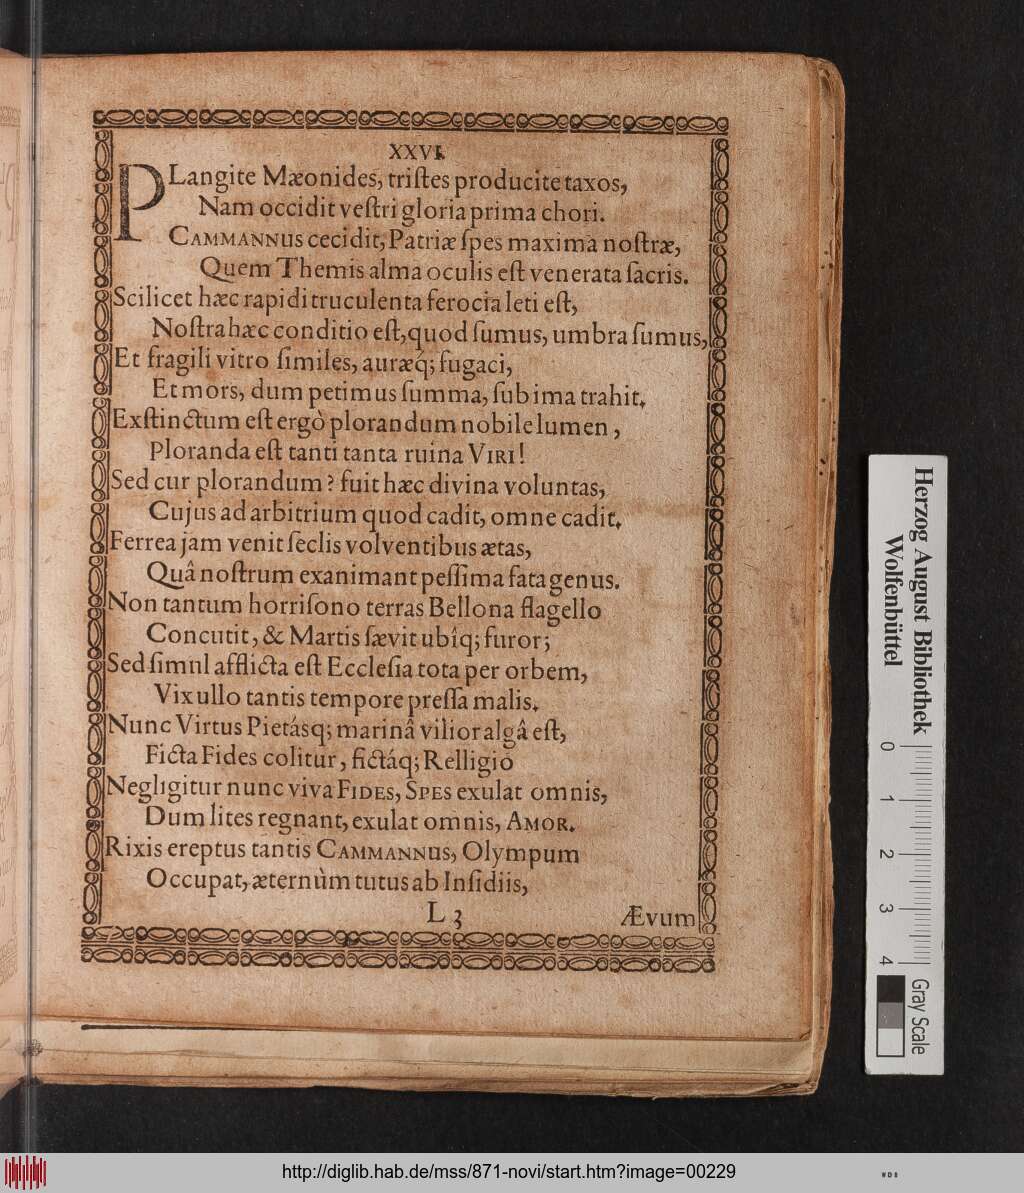 XXVI.
PLangite Mæonides, triſtes producite taxos,
Nam occidit veſtri gloria prima chori.
CAMMANNUS cecidit, Patriæ ſpes maxima noſtræ,
Quem Themis alma oculis eſt venerata ſacris.
Scilicet hæc rapidi truculenta ferocia leti eſt,
Noſtra hæc conditio eſt, quod ſumus, umbra ſumus,
Et fragili vitro ſimiles, auræq́; fugaci,
Et mors, dum petimus ſumma, ſub ima trahit.
Exſtinctum eſt ergò plorandum nobile lumen,
Ploranda eſt tanti tanta ruina VIRI!
Sed cur plorandum? fuit hæc divina voluntas,
Cujus ad arbitrium quod cadit, omne cadit.
Ferrea jam venit ſeclis volventibus ætas,
Quâ noſtrum exanimant peſſima fata genus.
Non tantum horriſono terras Bellona flagello
Concutit, & Martis ſævit ubîq; furor;
Sed ſimnl afflicta eſt Eccleſia tota per orbem,
Vix ullo tantis tempore preſſa malis.
Nunc Virtus Pietásq; marinâ vilior algâ eſt,
Ficta Fides colitur, fictáq; Relligio
Negligitur nunc viva FIDES, SPES exulat omnis,
Dum lites regnant, exulat omnis, AMOR.
Rixis ereptus tantis CAMMANNUS, Olympum
Occupat, æternùm tutus ab Inſidiis,
L 3
Ævum
Herzog August Bibliothek
Wolfenbüttel
0 1 2 3 4
Gray Scale
http://diglib.hab.de/mss/871-novi/start.htm?image=00229
WDB